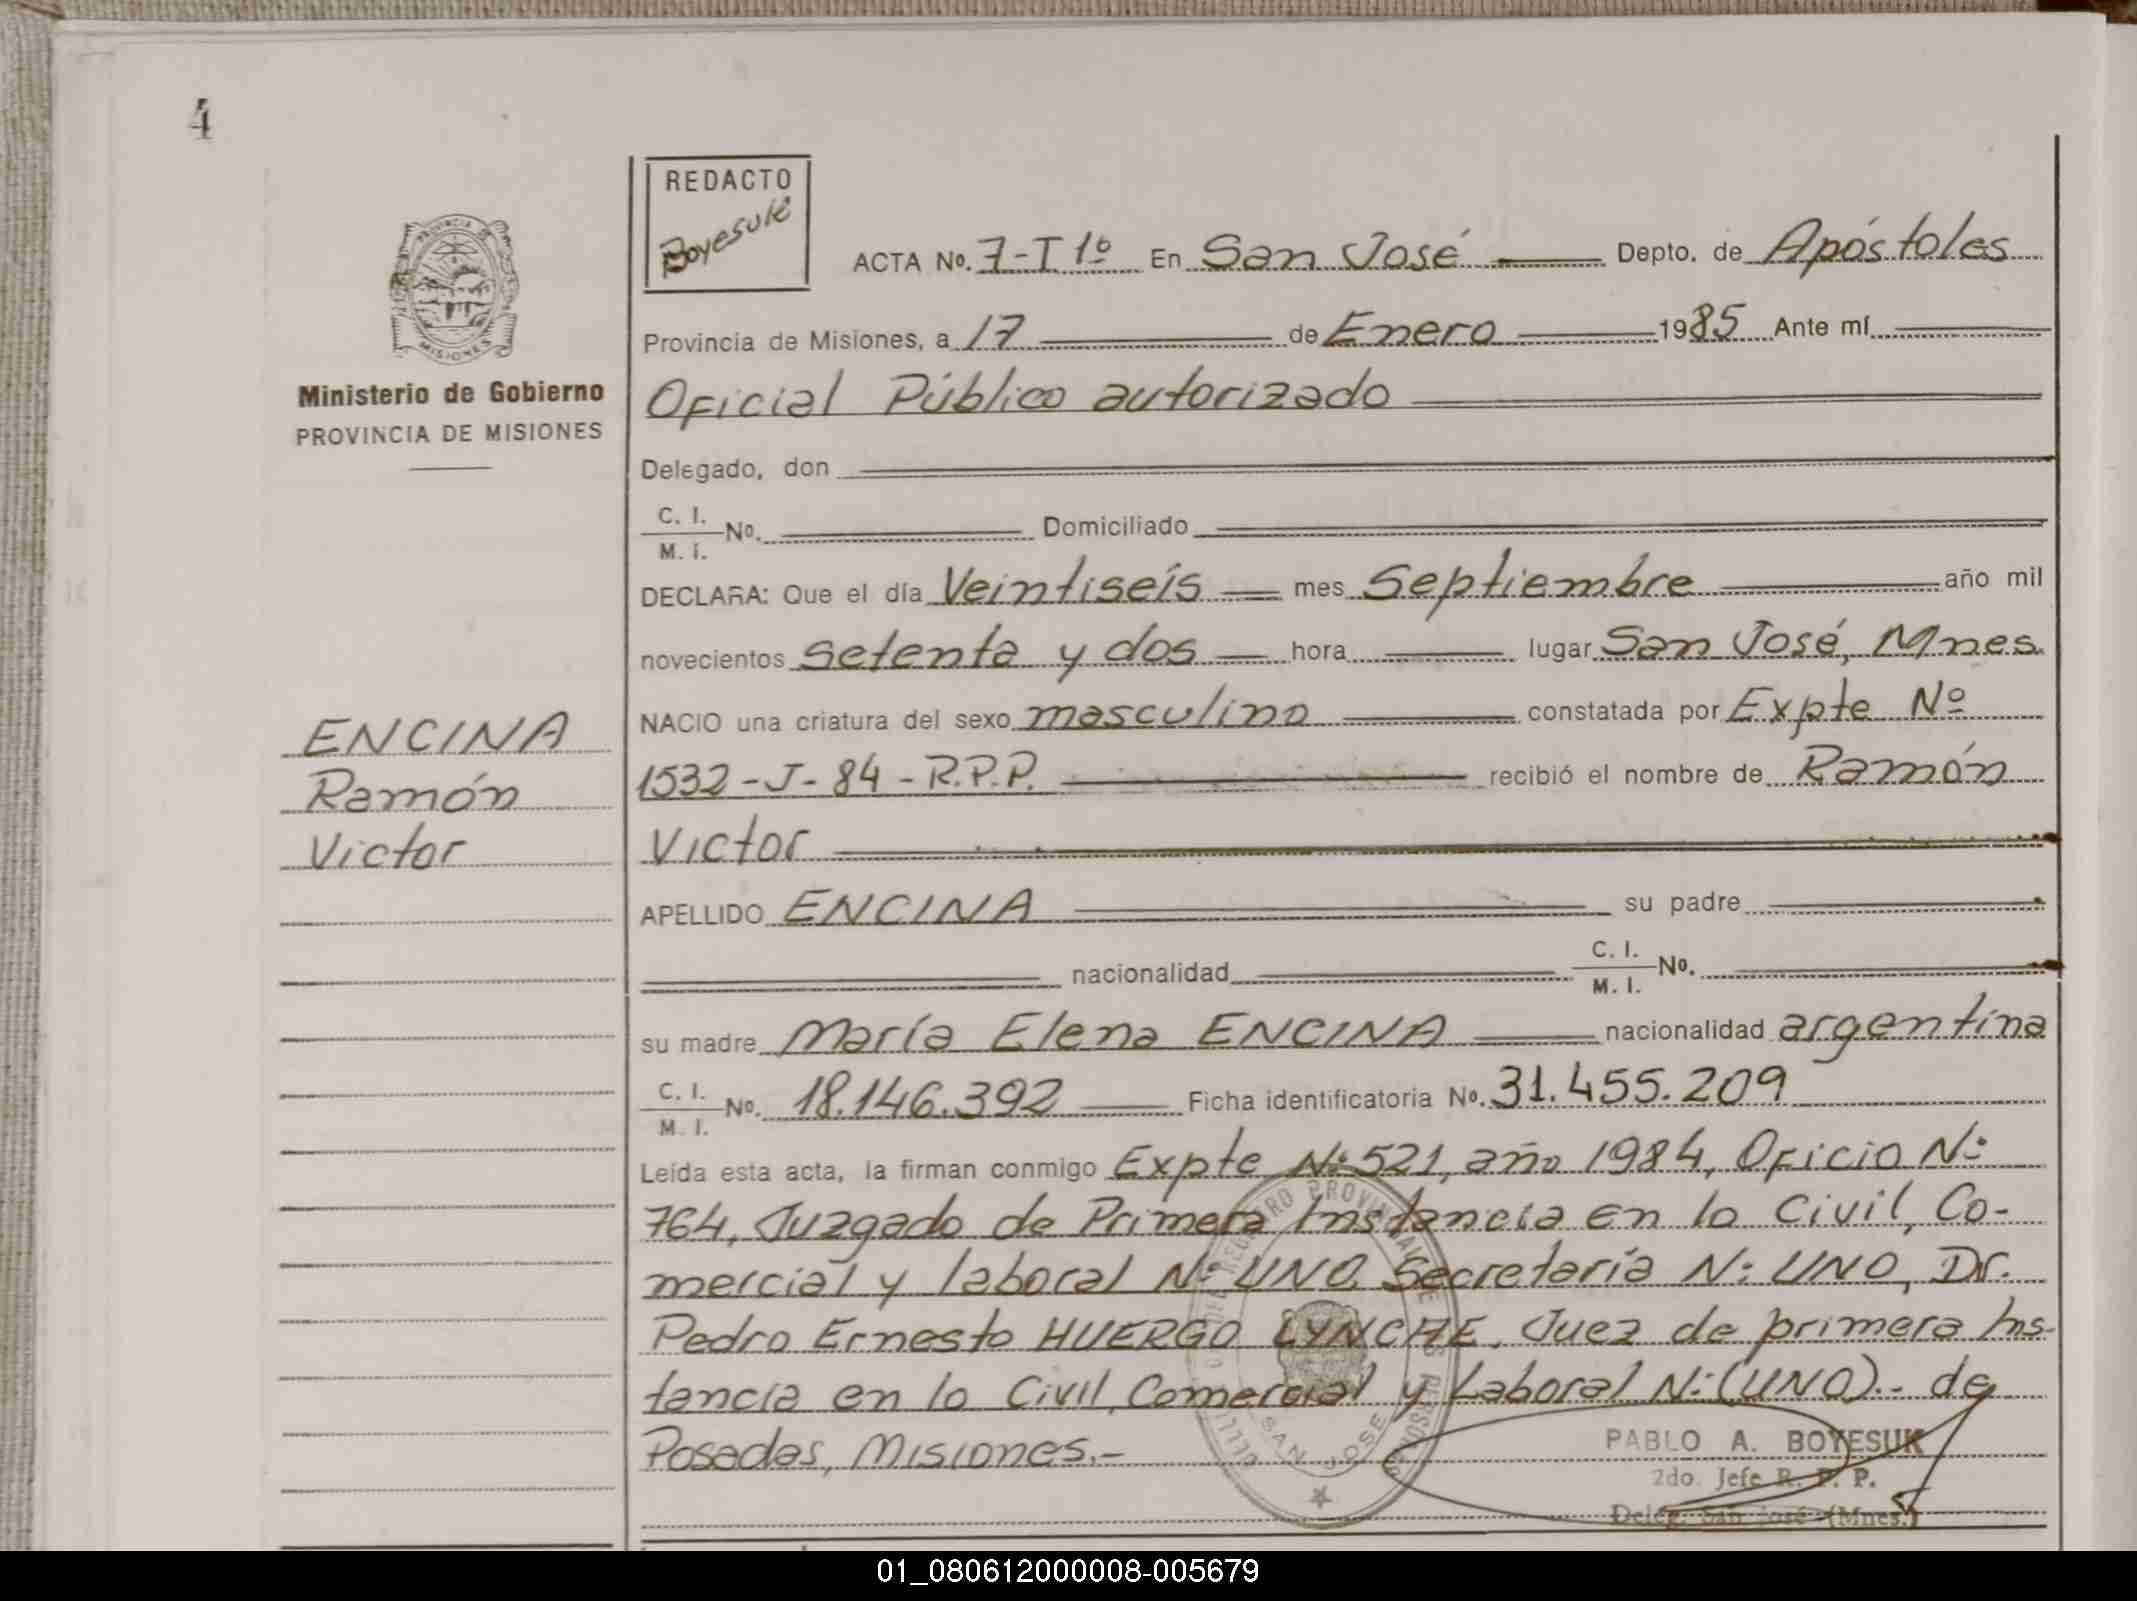 4
REDACTO
Boyesuk
ACTA Nº. 7-T 1º En San José Depto. de Apóstoles
Provincia de Misiones, a 17 de Enero 1985 Ante mí
Oficial Público autorizado
Delegado, don
C. I.
M. I. Nº. Domiciliado
DECLARA: Que el día Veintiseís mes Septiembre año mil
novecientos setenta y dos hora lugar San José, Mnes.
NACIO una criatura del sexo masculino constatada por Expte Nº
1532-J-84-R.P.P. recibió el nombre de Ramón
Victor
APELLIDO ENCINA su padre
nacionalidad C. I.
M. I. Nº.
su madre María Elena ENCINA nacionalidad argentina
C. I.
M. I. Nº. 18.146.392 Ficha identificatoria Nº. 31.455.209
Leída esta acta, la firman conmigo Expte Nº 521, año 1984, Oficio Nº
764, Juzgado de Primera Instancia en lo Civil, Co-
mercial y laboral Nº UNO, Secretaría Nº UNO, Dr.
Pedro Ernesto HUERGO LYNCHE, Juez de primera Ins-
tancia en lo Civil, Comercial y Laboral Nº (UNO).- de
Posadas, Misiones.-
PROVINCIA DE
MISIONES
Ministerio de Gobierno
PROVINCIA DE MISIONES
ENCINA
Ramón
Victor
REGISTRO PROVINCIAL DE LAS PERSONAS
SAN JOSE
PABLO A. BOYESUK
2do. Jefe R. P. P.
Deleg. San José (Mnes.)
01_080612000008-005679